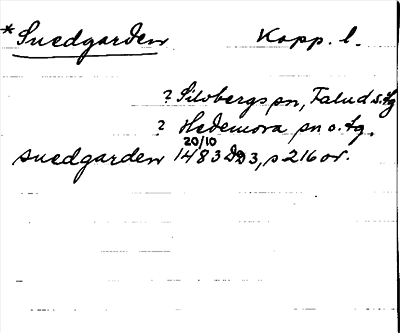 *Snedgarden Kopp. l.
? Silvbergs sn, Falud.s. tg
? Hedemora sn o. tg.
snedgarden 20/10 1483 DD3, s 216 or.